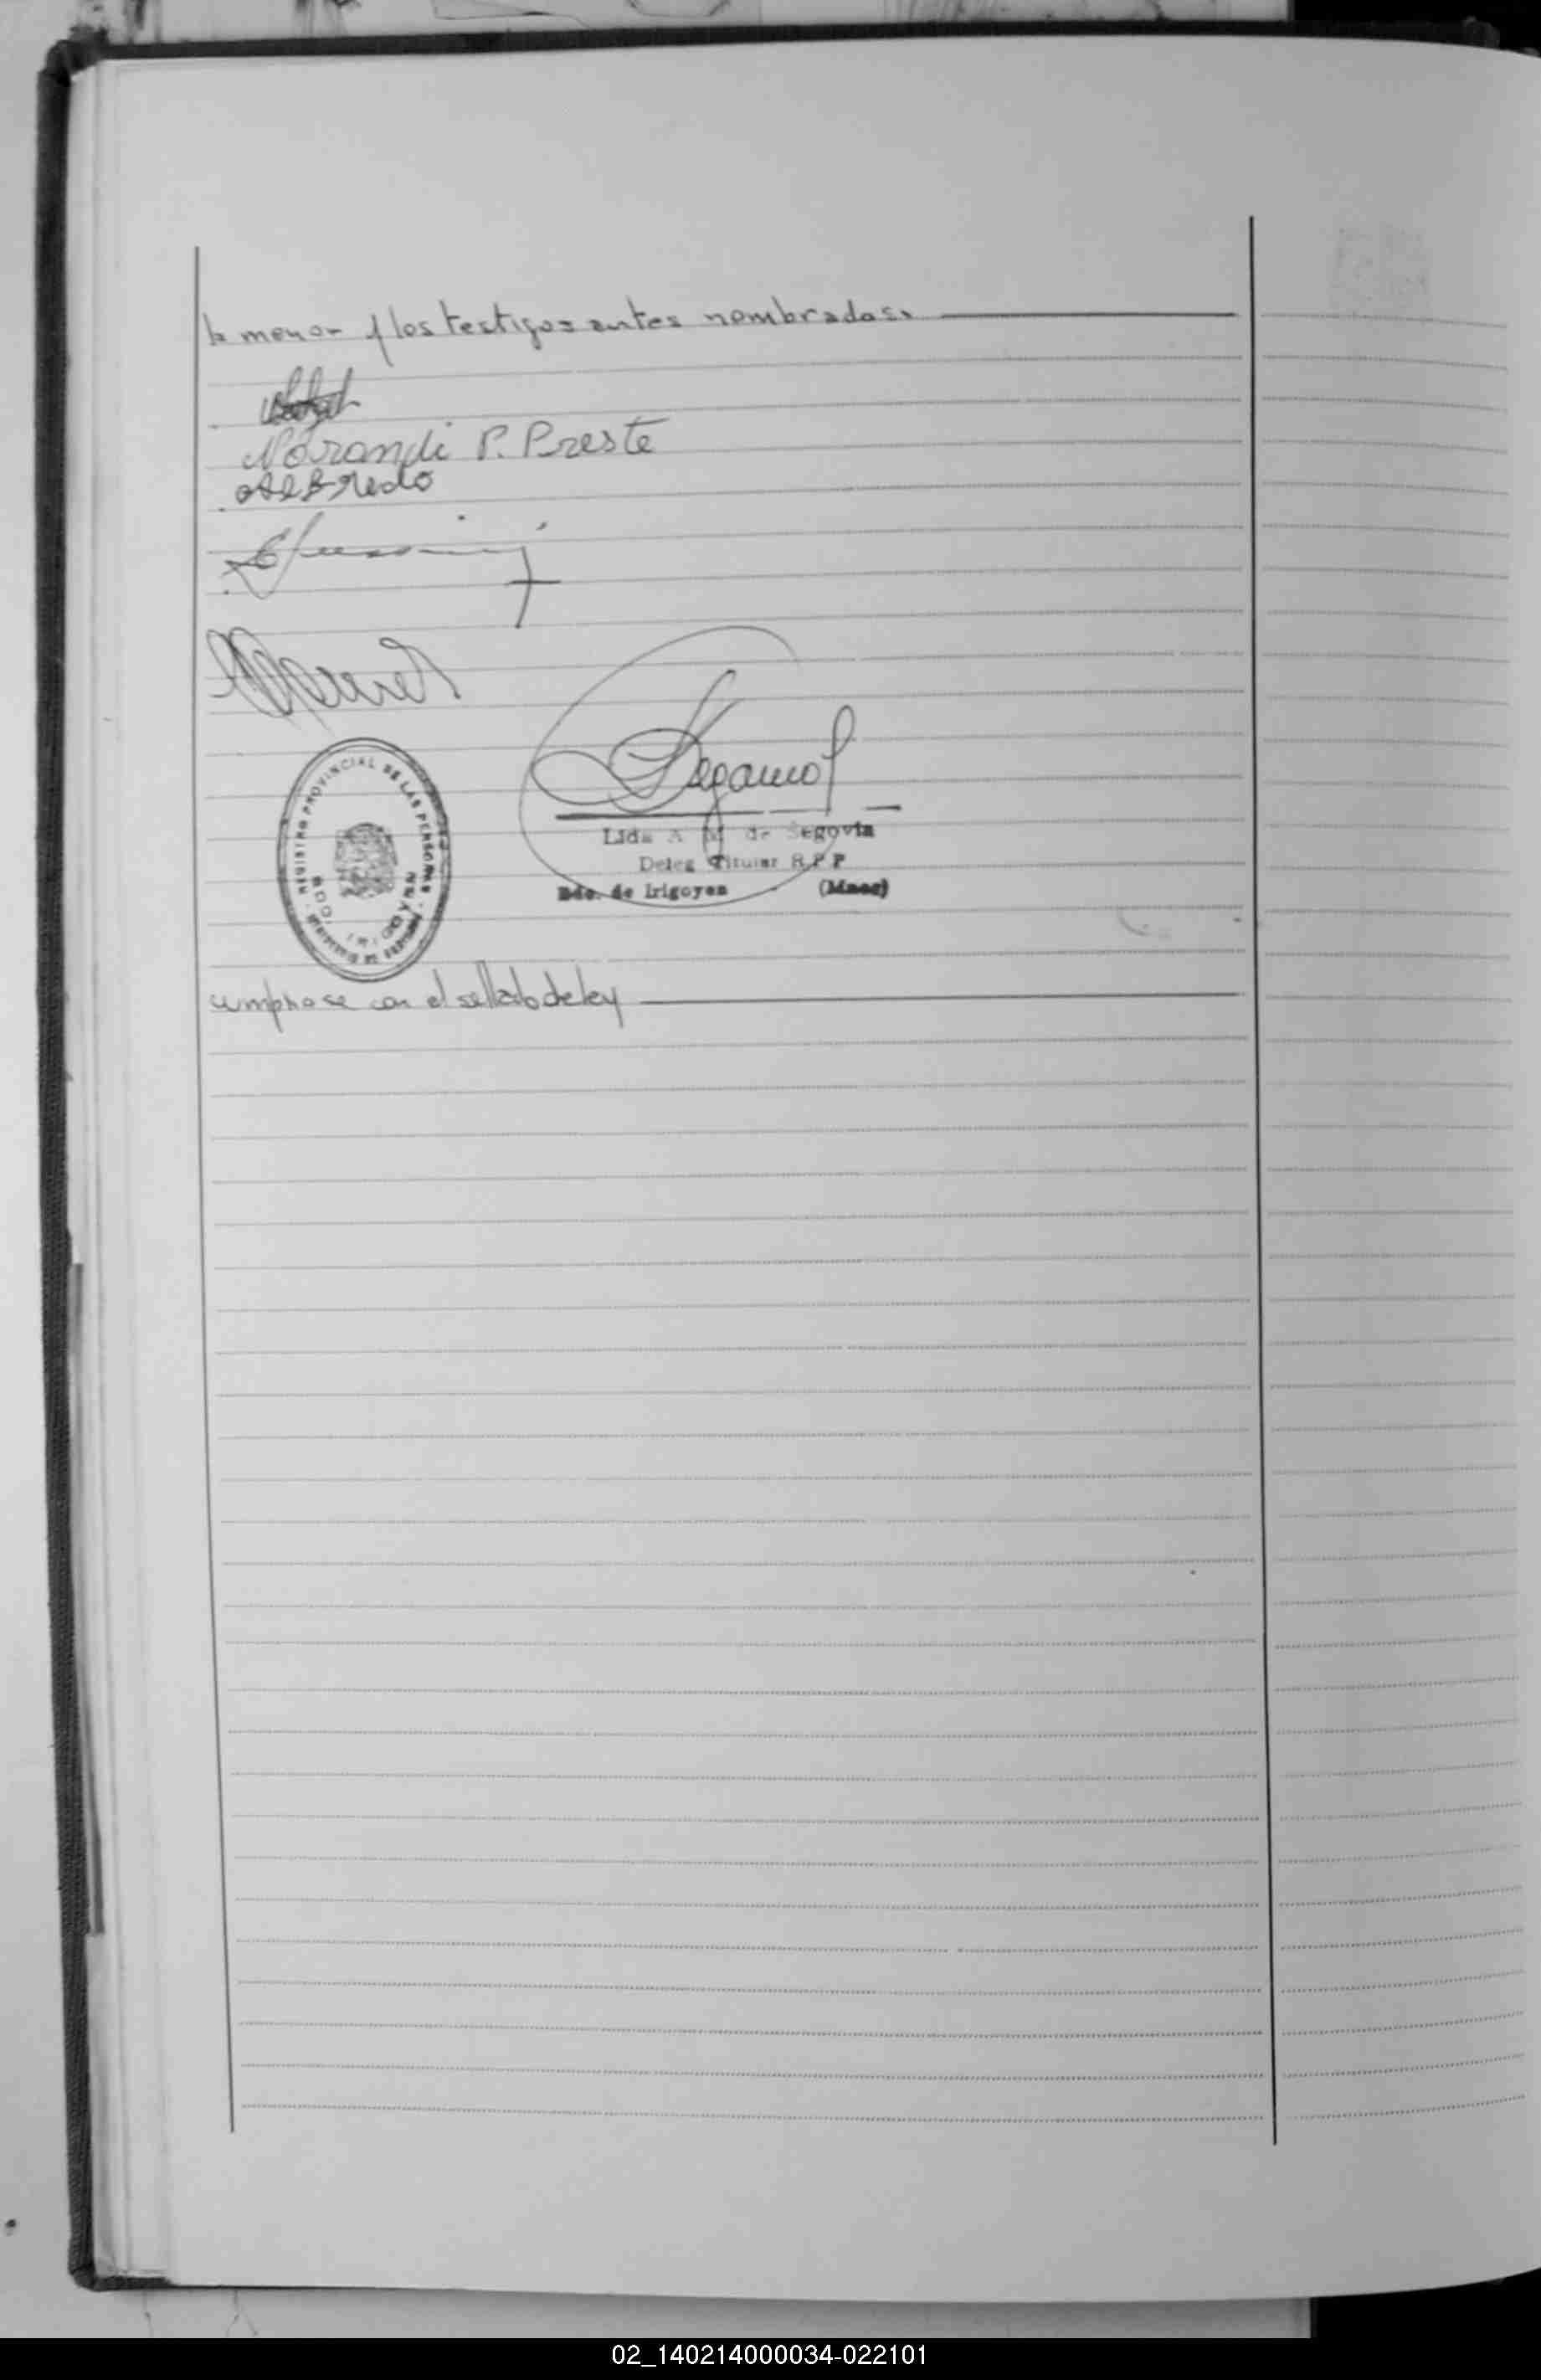 la menor y los testigos antes nombrados.
Norandi P. Preste
Albredo
REGISTRO PROVINCIAL DE LAS PERSONAS
BDO. IRIGOYEN
Lida A M de Segovia
Deleg Titular R.P.P
Bdo. de Irigoyen (Mnes)
cumplase con el sellado de ley
02_140214000034-022101